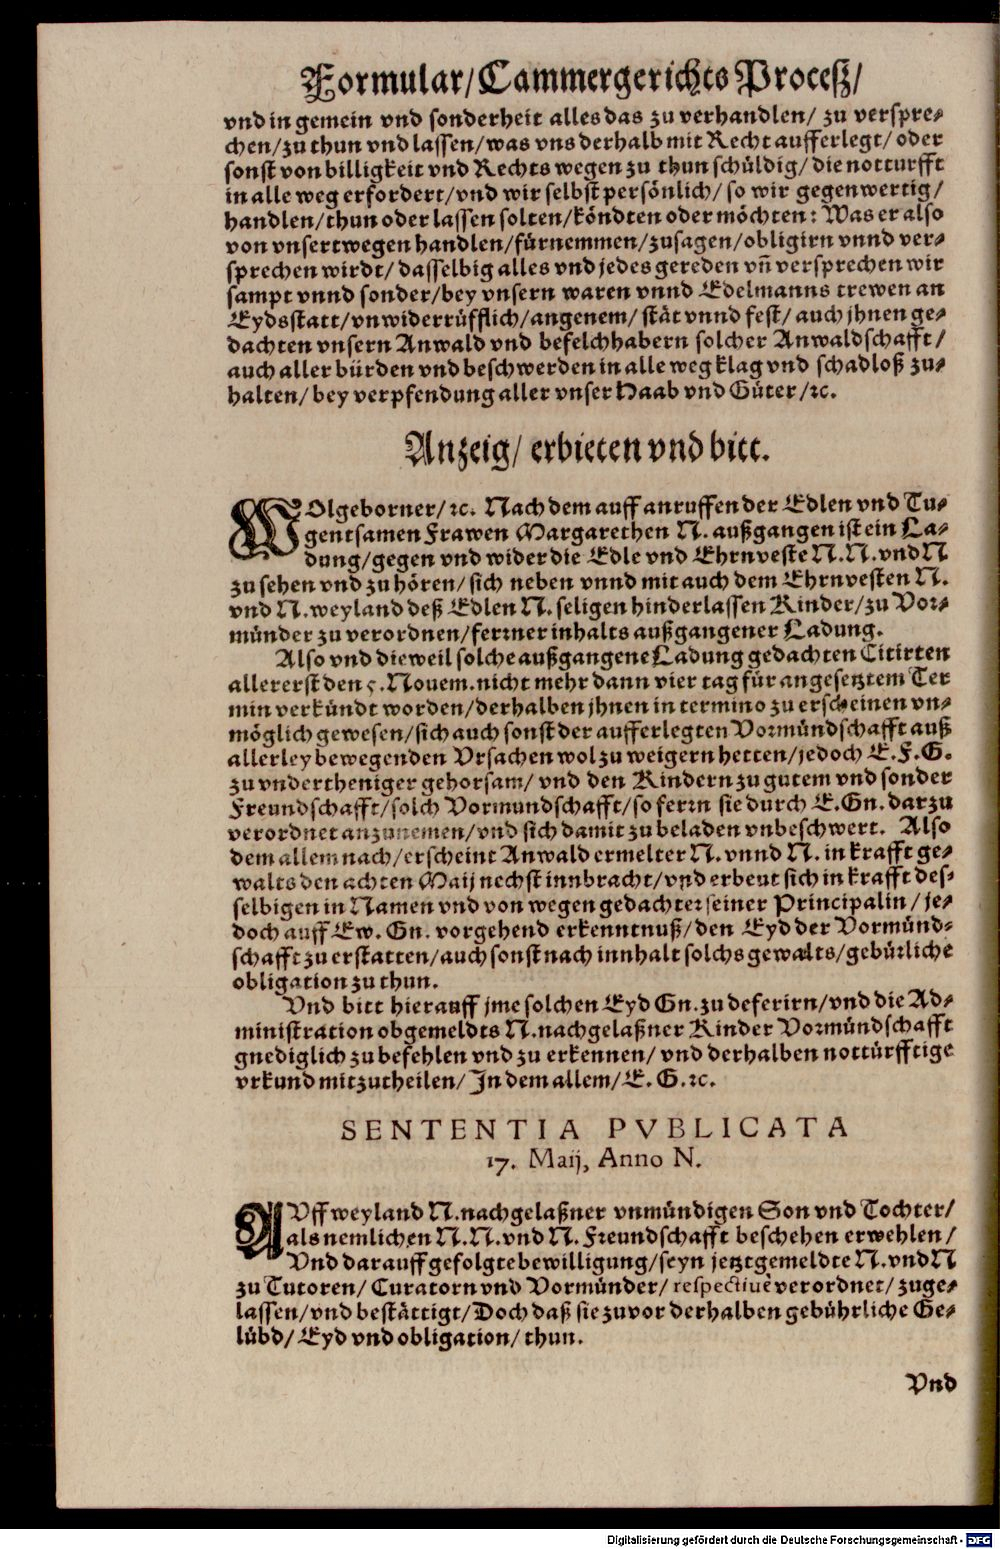 Formular/Cammergerichts Proceß/
vnd in gemein vnd sonderheit alles das zu verhandlen/ zu verspre-
chen/zu thun vnd lassen/was vns derhalb mit Recht aufferlegt/ oder
sonst von billigkeit vnd Rechts wegen zu thun schüldig/ die notturfft
in alle weg erfordert/vnd wir selbst persönlich/ so wir gegenwertig/
handlen/thun oder lassen solten/köndten oder möchten: Was er also
von vnsertwegen handlen/fürnemmen/zusagen/obligirn vnnd ver-
sprechen wirdt/ dasselbig alles vnd jedes gereden vñ versprechen wir
sampt vnnd sonder/bey vnsern waren vnnd Edelmanns trewen an
Eydsstatt/vnwiderrüfflich/angenem/ stät vnnd fest/ auch jhnen ge-
dachten vnsern Anwald vnd befelchhabern solcher Anwaldschafft/
auch aller bürden vnd beschwerden in alle weg klag vnd schadloß zu-
halten/ bey verpfendung aller vnser Haab vnd Güter/ꝛc.
Anzeig/ erbieten vnd bitt.
WOlgeborner/ꝛc. Nach dem auff anruffen der Edlen vnd Tu-
gentsamen Frawen Margarethen N. außgangen ist ein La-
dung/gegen vnd wider die Edle vnd Ehrnveste N.N. vnd N
zu sehen vnd zu hören/ sich neben vnnd mit auch dem Ehrnvesten N.
vnd N. weyland deß Edlen N. seligen hinderlassen Kinder/zu Vor-
münder zu verordnen/ferrner inhalts außgangener Ladung.
Also vnd dieweil solche außgangene Ladung gedachten Citirten
allererst den 5. Nouem. nicht mehr dann vier tag für angesetztem Ter
min verkündt worden/derhalben jhnen in termino zu erscheinen vn-
möglich gewesen/sich auch sonst der aufferlegten Vormündschafft auß
allerley bewegenden Vrsachen wol zu weigern hetten/jedoch E.F.G.
zu vndertheniger gehorsam/ vnd den Kindern zu gutem vnd sonder
Freundschafft/solch Vormundschafft/so ferrn sie durch E.Gn. darzu
verordnet anzunemen/vnd sich damit zu beladen vnbeschwert. Also
dem allem nach/erscheint Anwald ermelter N. vnnd N. in krafft ge-
walts den achten Maij nechst innbracht/vnd erbeut sich in krafft des-
selbigen in Namen vnd von wegen gedachter seiner Principalin/je-
doch auff Ew. Gn. vorgehend erkenntnuß/den Eyd der Vormünd-
schafft zu erstatten/auch sonst nach innhalt solchs gewalts/gebürliche
obligation zu thun.
Vnd bitt hierauff jme solchen Eyd Gn. zu deferirn/vnd die Ad-
ministration obgemeldts N. nachgelaßner Kinder Vormündschafft
gnediglich zu befehlen vnd zu erkennen/ vnd derhalben nottürfftige
vrkund mitzutheilen/ In dem allem/ E. G. ꝛc.
SENTENTIA PVBLICATA
17. Maij, Anno N.
AVff weyland N. nachgelaßner vnmündigen Son vnd Tochter/
als nemlichen N.N. vnd N. Freundschafft beschehen erwehlen/
Vnd darauff gefolgte bewilligung/seyn jetztgemeldte N. vnd N
zu Tutoren/ Curatorn vnd Vormünder/ respectiuè verordnet/ zuge-
lassen/vnd bestättigt/Doch daß sie zuvor derhalben gebührliche Ge-
lübd/ Eyd vnd obligation/ thun.
Vnd
Digitalisierung gefördert durch die Deutsche Forschungsgemeinschaft - DFG